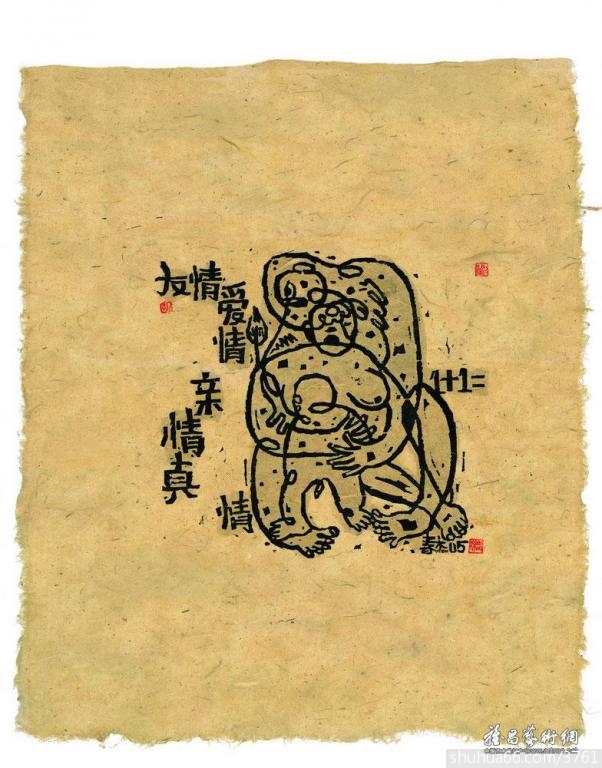 友情
爱情
亲情真
情
1+1=
春杰05
雅昌藝術網
shuhua66.com/3761